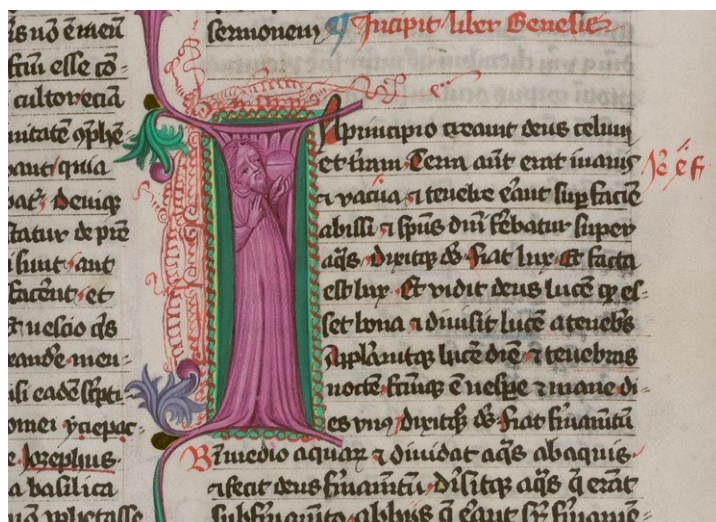 is nō ē meū
esse cō-
cultor eciā
uitatē ꝯphē-
bant quia
bat: deniqꝫ
statur de pre
aut
facēnt et
nescio qs
meu-
ili eadē scpti-
e Iosephus
a basilica
nō ꝓphetasse
sermonem Incipit liber Genesis
In principio creauit deus celum
et tr̄am Terra aūt erat inanis
⁊ vacua ⁊ tenebre eāut sup̄ faciē
abissi ⁊ spūs dn̄i fēbatur super
aq̄s dixitqꝫ ds̄ fiat lux Et facta
est lux Et vidit deus lucē qꝫ es-
set bona ⁊ diuisit lucē a tenebs̄
Appl̄auitqꝫ lucē diē ⁊ tenebras
noctē fc̄mqꝫ ē vesp̄e ⁊ mane di-
es vnꝰ dixitqꝫ ds̄ fiat firmamtū
In medio aquaꝝ ⁊ diuidat aq̄s ab aquis
⁊ fecit deus firmamtū diuisitqꝫ aq̄s q̄ erāt
sub firmamto ab hiis q̄ eāut sr̄ firmamē-